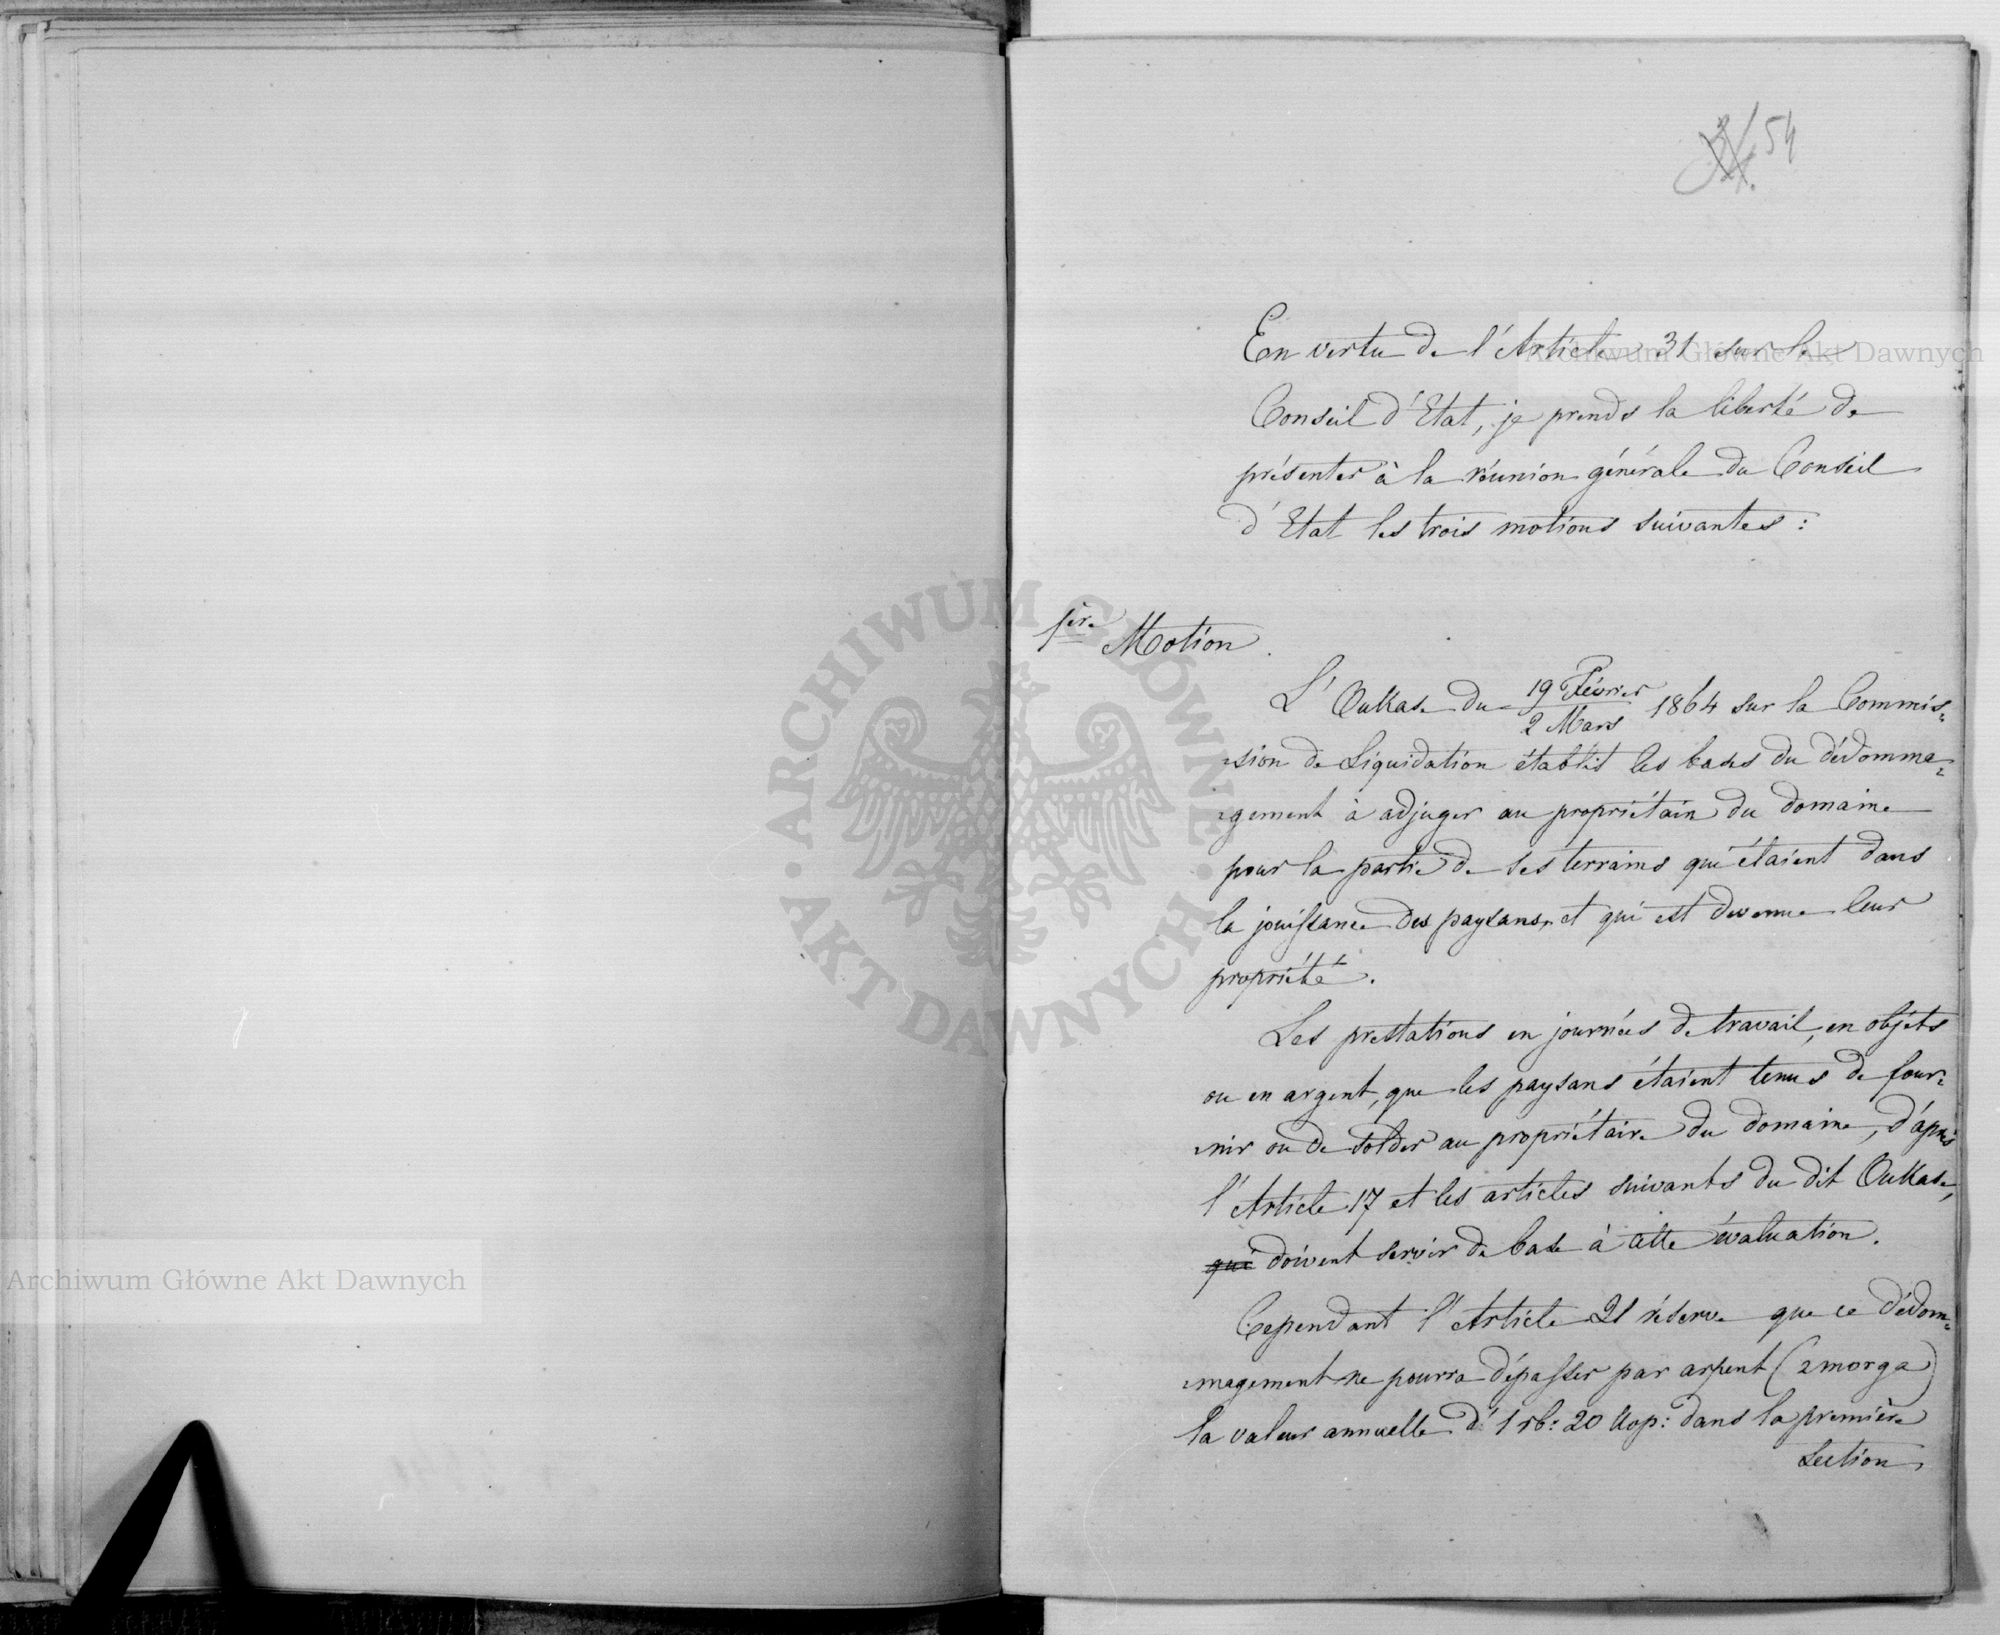 54
En vertu de l'Article 31 sur le
Conseil d'Etat, je prends la liberté de
présenter à la réunion générale du Conseil
d'Etat les trois motions suivantes :
1ère Motion.
L'Oukase du 19 Février / 2 Mars 1864 sur la Commis=
=sion de Liquidation établit les bases du dédomma=
=gement à adjuger au propriétaire du domaine
pour la partie de ses terrains qui étaient dans
la jouissance des paysans, et qui est devenue leur
propriété.
Les prestations en journées de travail, en objets
ou en argent, que les paysans étaient tenus de four=
=nir ou de solder au propriétaire du domaine, d'après
l'Article 17 et les articles suivants du dit Oukase,
qui doivent servir de base à cette évaluation.
Cependant l'Article 21 réserve que ce dédom=
=magement ne pourra dépasser par arpent (morga)
la valeur annuelle d'1 rb: 20 Kop: dans la première
section,
Archiwum Główne Akt Dawnych
Archiwum Główne Akt Dawnych
ARCHIWUM GŁÓWNE · AKT DAWNYCH ·